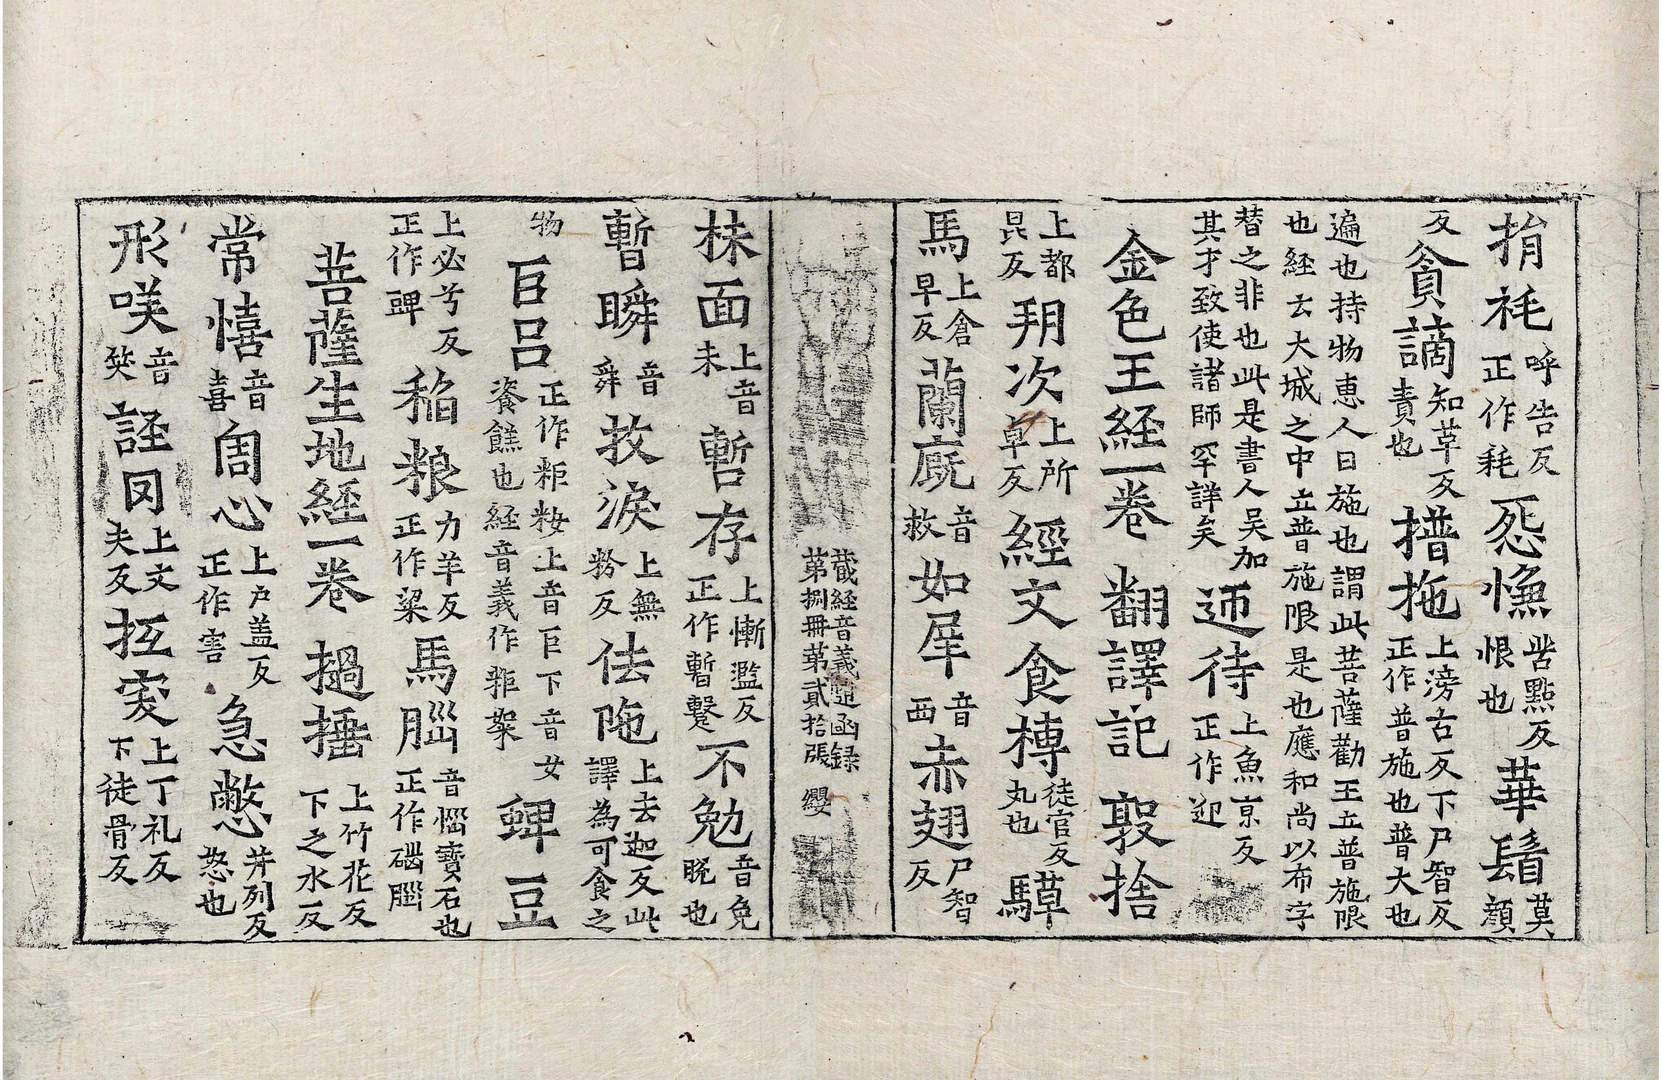 捐秏呼告反正作耗𢙣憔嵤點反恨也華鬘莫顔
反貪謫知革反責也𢴃拖上滂古反下尸智反正作普施也普大也
遍也持物惠人曰施也謂此菩薩勸王立普施限也経云大城之中立普施限是也應和尚以布字
替之非也此是書人吴加其才致使諸師罕詳矣迊待上魚京反正作迎
金色王経一卷 翻譯記 㪟捨
上都昆反玥次上所卓反經文食槫徒官反丸也騲
馬上倉早反蘭廐音救如犀音西赤翅尸智反
藏経音義随函録第捌冊第貳拾張 纓
抹面上音未暫存上慚濫反正作暫蹔不勉音免晚也
暫瞬音舜抆淚上無粉反佉陁上去迦反此譯為可食之
物 㠪吕正作粔籹上音巨下音女餈饊也経音義作㸬㭉蜱豆
上必兮反正作豍稲粮力羊反正作粱馬腦音惱寶石也正作碯𦠊
菩薩生地経一卷 撾捶上竹花反下之水反
常憘音喜周心上户盖反正作害急憋芳列反怒也
形咲音笑誣罔上文夫反抂突上丁礼反下徒骨反